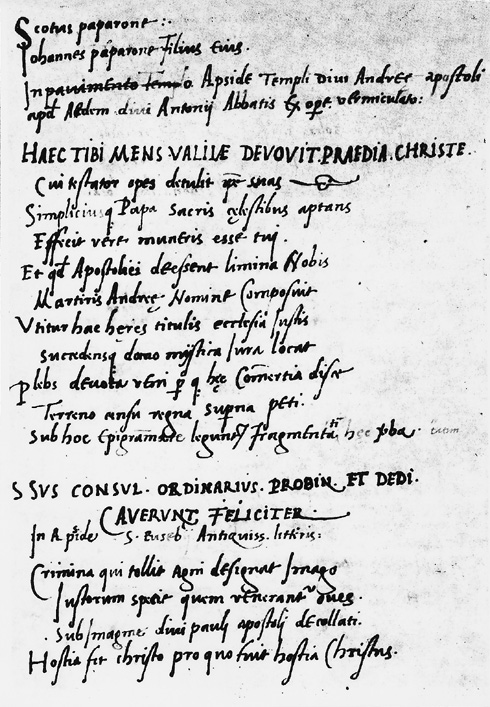 Scotus paparone:.
Johannes paparone Filius eius.
In pavimento templo. Apside Templi Divi Andreę apostoli
apd Aedem divi Antonij Abbatis Ex ope. vermiculato:
HAEC TIBI MENS VALILÆ DEVOVIT. PRAEDIA. CHRISTE.
Cui testator opes detulit suas
Simpliciusq Papa sacris cęlestibus aptans
Effecit vere muneris esse tui.
Et qd Apostolici deessent limina Nobis
Martiris Andreę Nomine Composuit
Vtitur hac hęres titulis ecclesia Iustis
succedensq domo mystica Iura locat
Plebs devota veni hęc Comertia disce
Terreno censu regna supna peti.
sub hoc Epigramate Fragmenta hęc
SSVS CONSVL. ORDINARIVS. PROBIN. ET DEDI.
CAVERVNT FELICITER
In Apside S. Euseb Antiquiss. litteris:
Crimina qui tollit Agni designat Imago
Iustorum specie quem venerantr oues.
. sub Imagine divi pauli apostoli decollati.
Hostia fit christo pro quo fuit hostia Christus.